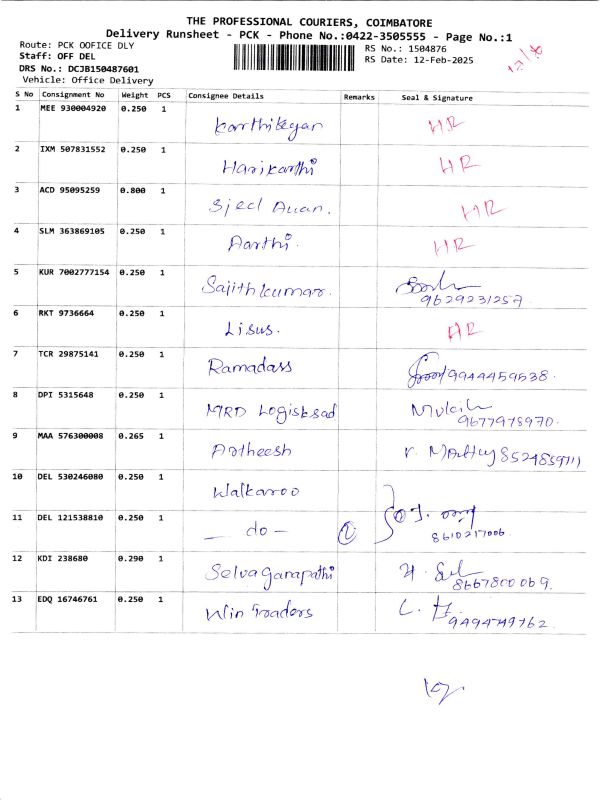 THE PROFESSIONAL COURIERS, COIMBATORE
Delivery Runsheet - PCK - Phone No.:0422-3505555 - Page No.:1
Route: PCK OOFICE DLY RS No.: 1504876
Staff: OFF DEL RS Date: 12-Feb-2025
DRS No.: DCJB150487601
Vehicle: Office Delivery
S No Consignment No Weight PCS Consignee Details Remarks Seal & Signature
1 MEE 930004920 0.250 1 Karthikeyan HR
2 IXM 507831552 0.250 1 Harikarthi HR
3 ACD 95095259 0.800 1 HR
4 SLM 363869105 0.250 1 Aarthi. HR
5 KUR 7002777154 0.250 1 Sajith kumar. 9629231257
6 RKT 9736664 0.250 1 Lisus. HR
7 TCR 29875141 0.250 1 Ramadass 9944459538
8 DPI 5315648 0.250 1 MRD 9677975970.
9 MAA 576300008 0.265 1 Artheesh 8524859711
10 DEL 530246080 0.250 1 Walkaroo
11 DEL 121538810 0.250 1 — do — 2 8610217006.
12 KDI 238680 0.290 1 Selva Ganapathi 8667800069.
13 EDQ 16746761 0.250 1 Win Traders 9494749762